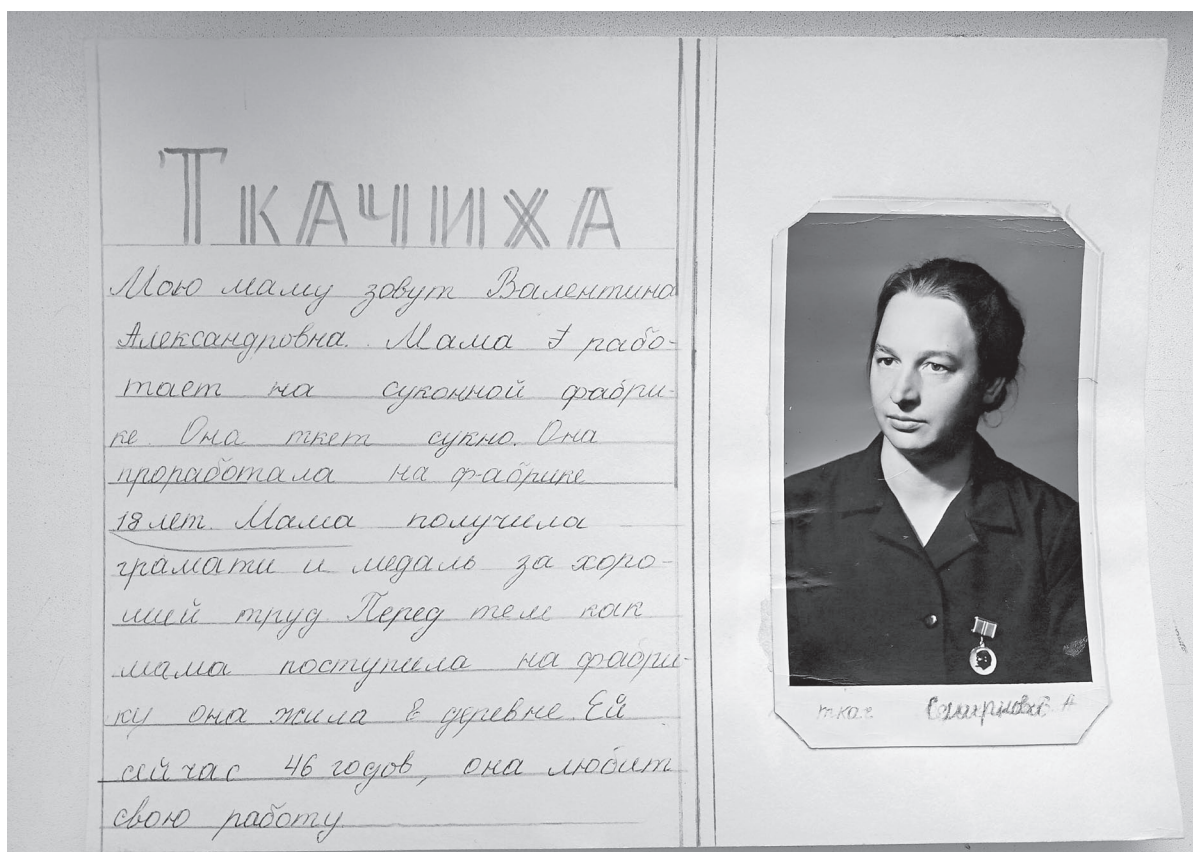 Ткачиха
Мою маму зовут Валентина
Александровна. Мама рабо-
тает на суконной фабри-
ке. Она ткет сукно. Она
проработала на фабрике
18 лет. Мама получила
грамати и медаль за хоро-
ший труд. Перед тем как
мама поступила на фабри-
ку она жила в деревне. Ей
сейчас 46 годов, она любит
свою работу
ткач Смирнова А